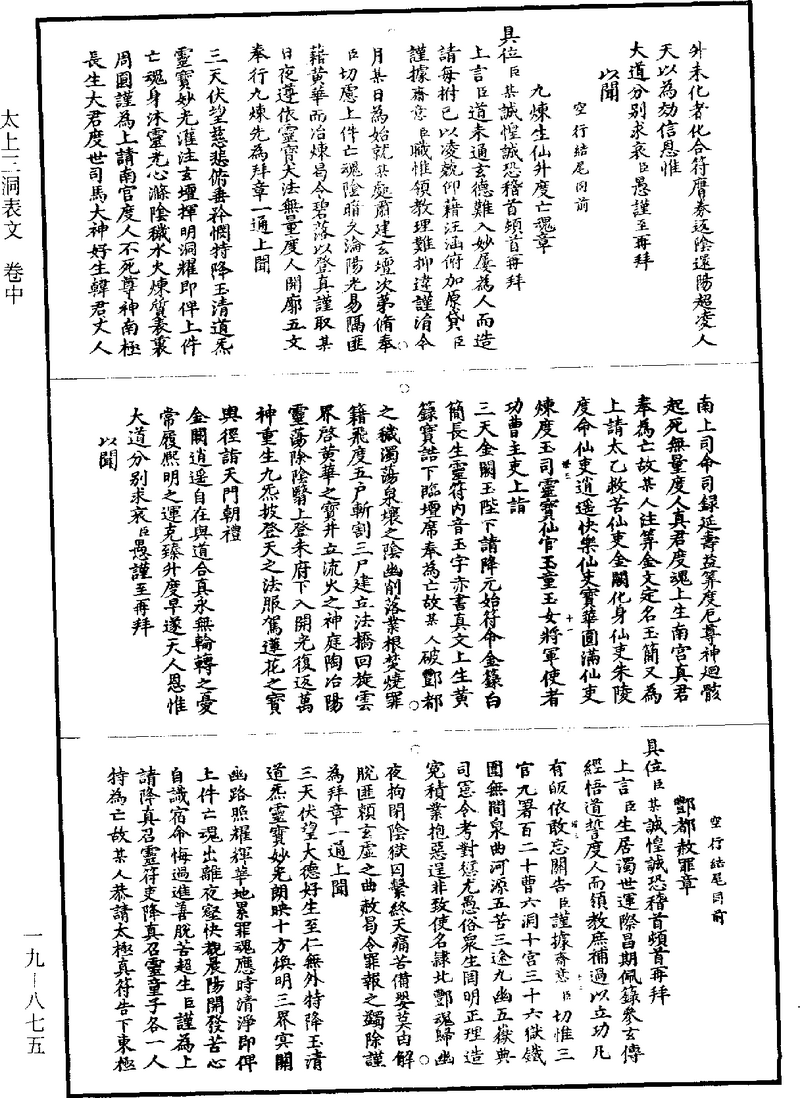 外未化者化合符膺券返陰還陽超凌人
天以為効信恩惟
大道分別求哀臣愚謹至再拜
以聞
空行結尾同前
九煉生仙升度亡魂章
具位臣某誠惶誠恐稽首頓首再拜
上言臣道未通玄德難入妙屢為人而造
請每拊己以凌兢仰籍汪涵俯加原貸臣
謹據齋意臣職惟領教理難抑違謹涓今
月某日為始就某處肅建玄壇次第脩奉
臣切慮上件亡魂陰暗久淪陽光易隔匪
藉黃華而冶煉曷令碧落以登真謹取某
日夜遵依靈寶大法無量度人開廓五文
奉行九煉先為拜章一通上聞
三天伏望慈悲俯垂矜憫特降玉清道炁
靈寶妙光灌注玄壇揮明洞耀即俾上件
亡魂身沐靈光心滌陰穢水火煉質表裏
周圓謹為上請南宮度人不死尊神南極
長生大君度世司馬大神好生韓君丈人
南上司命司録延壽益筭度厄尊神迴骸
起死無量度人真君度魂上生南宮真君
奉為亡故某人注筭金文定名玉簡又為
上請太乙救苦仙吏金闕化身仙吏朱陵
度命仙吏逍遥快樂仙吏寶華圓滿仙吏
煉度玉司靈寶仙官玉童玉女將軍使者
功曹主吏上詣
三天金闕玉陛下請降元始符命金籙白
簡長生靈符内音玉字赤書真文上生黃
籙寶誥下臨壇席奉為亡故某人破酆都
之穢濁蕩泉壤之陰幽削落業根焚燒罪
籍飛度五戶斬割三尸建立法橋回旋雲
界啓黃華之寶井立流火之神庭陶冶陽
靈蕩除陰翳上登朱府下入開光復返萬
神重生九炁披登天之法服駕蓮花之寶
輿徑詣天門朝禮
金闕逍遥自在與道合真永無輪轉之憂
常履熙明之運克臻升度早遂天人恩惟
大道分別求哀臣愚謹至再拜
以聞
空行結尾同前
酆都赦罪章
具位臣某誠惶誠恐稽首頓首再拜
上言臣生居濁世運際昌期佩籙參玄傳
經悟道誓度人而領教庶補過以立功凡
有皈依敢忘關告臣謹據齋意臣切惟三
官九署百二十曹六洞十宮三十六獄鐵
圍無間泉曲河源五苦三途九幽五嶽典
司憲令考對愆尤愚俗衆生罔明正理造
冤積業抱惡逞非致使名隸北酆魂歸幽
夜拘閉陰獄囚繫終天痛苦備嬰莫由解
脫匪頼玄虛之曲赦曷令罪報之蠲除謹
為拜章一通上聞
三天伏望大德好生至仁無外特降玉清
道炁靈寶妙光朗映十方煥明三界冥關
幽路照耀輝華地累罪魂應時清淨即俾
上件亡魂出離夜壑快覩晨陽開發苦心
自識宿命悔過進善脫苦超生臣謹為上
請降真召靈符吏降真召靈童子各一人
特為亡故某人恭請太極真符告下東極
太上三洞表文　卷中
一九—八七五